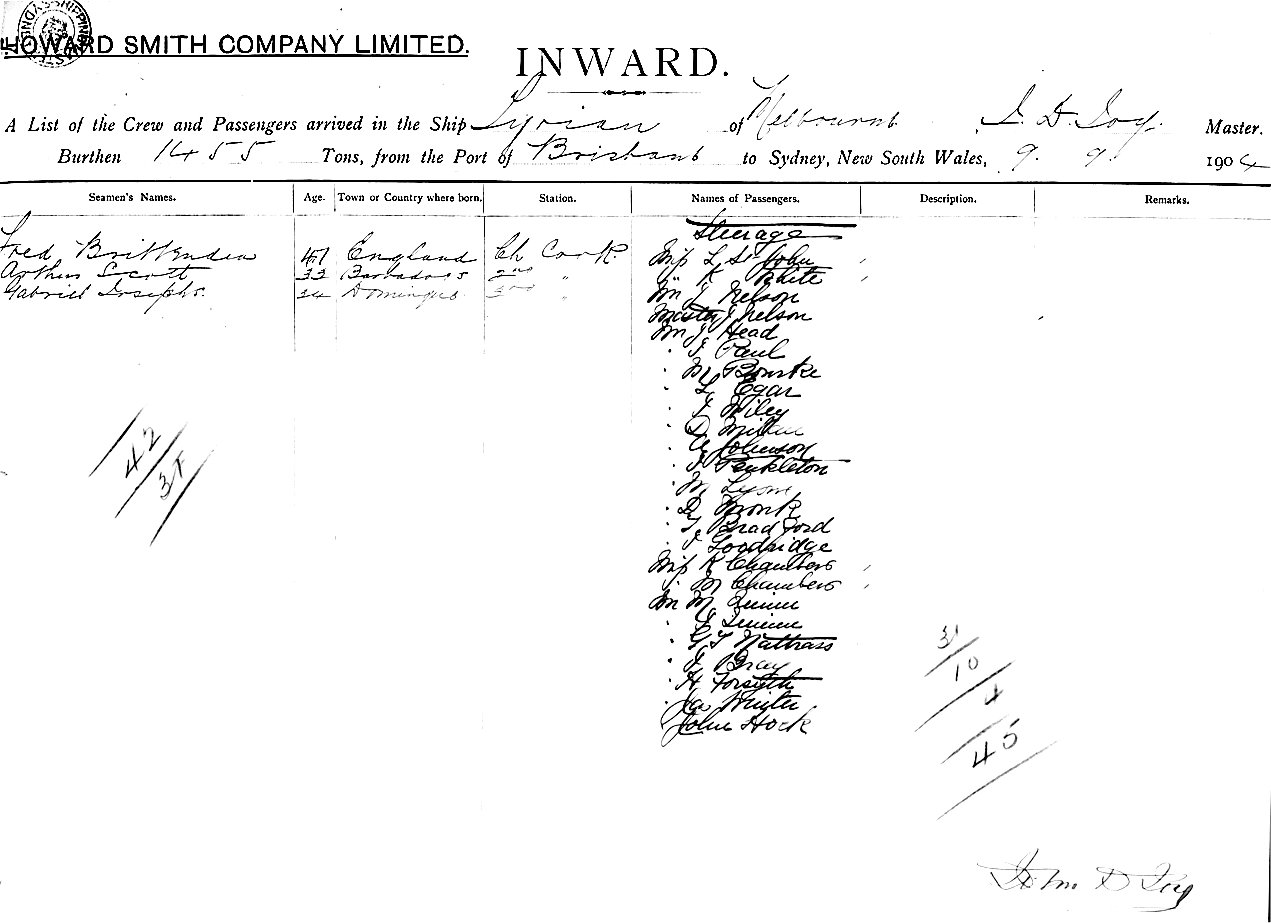 HOWARD SMITH COMPANY LIMITED.
INWARD.
A List of the Crew and Passengers arrived in the Ship Tyrian of Melbourne Master.
Burthen 1455 Tons, from the Port of Brisbane to Sydney, New South Wales, 9. 9. 1904
Seamen's Names. Age. Town or Country where born. Station. Names of Passengers. Description. Remarks.
Steerage
Fred Brittenden 47 England Ch Cook Miss L St John
Arthur Scott 33 Barbados 2nd " " K White
Gabriel Josephs. 24 3rd " Mr J Nelson
Master J Nelson
Mr J Head
" J Paul
" M Bourke
" L Egar
" J Wiley
" D
" Johnson
" J Penkleton
" M Lyons
" D Monk
" T Bradford
" J Goodridge
Miss K Chambers
" M Chambers
Mr M Quinn
" J Quinn
" G T Nattrass
" J Bray
" H Forsyth
" Ja Winter
John Hock
42
31
31
10
4
45